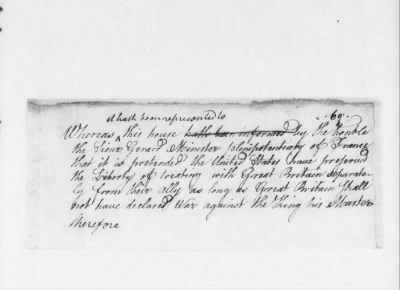 it hath been represented to
Whereas ^ this house hath been informed by the Honble
the Sieur Gerard Minister plenipotentiary of France
that it is pretended the United States have preserved
the Liberty of treating with Great Britain separate-
ly from their ally as long as Great Britain shall
not have declared War against the King his Master
therefore